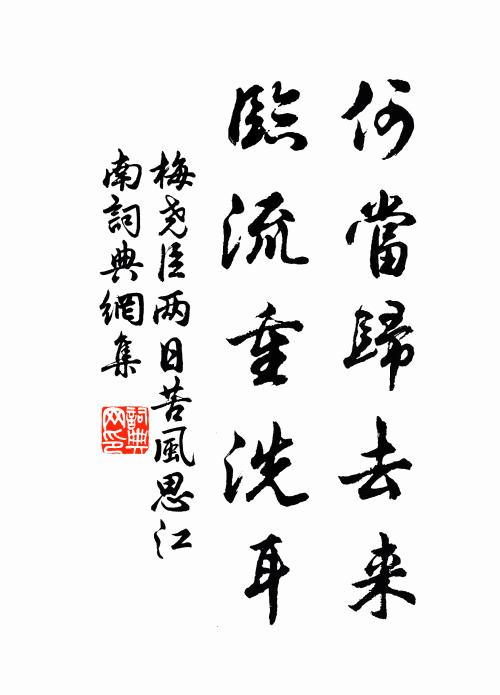 何當歸去来
臨流重洗耳
梅尧臣两日苦風思江
南詞典網集
詞典
网印